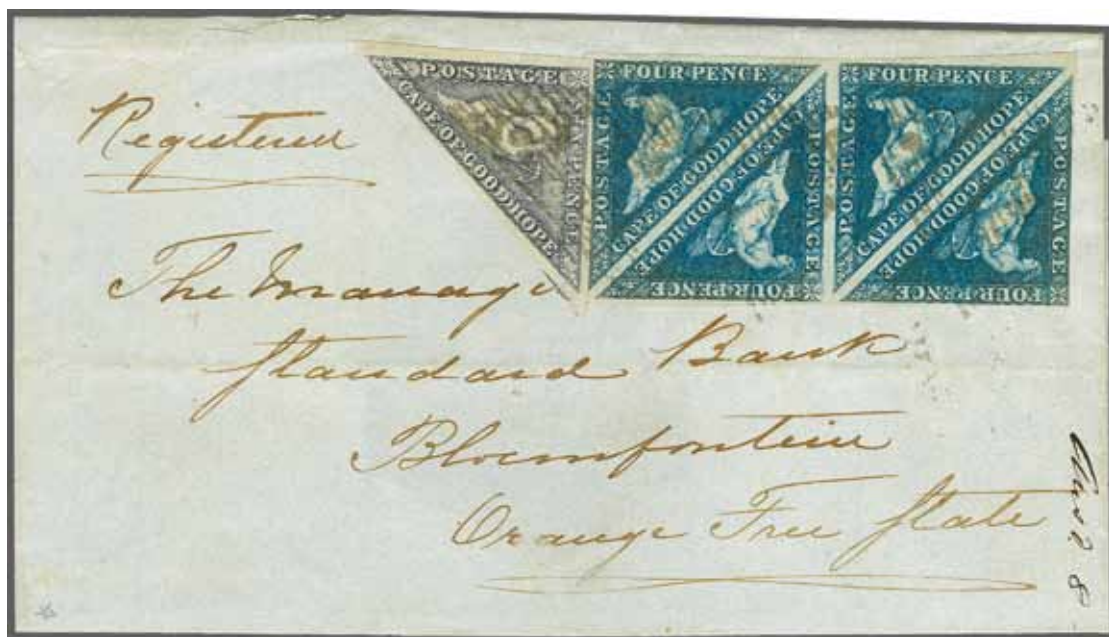 POSTAGE
CAPE OF GOOD HOPE
SIX PENCE
FOUR PENCE
POSTAGE
CAPE OF GOOD HOPE
CAPE OF GOOD HOPE
POSTAGE
FOUR PENCE
FOUR PENCE
POSTAGE
CAPE OF GOOD HOPE
CAPE OF GOOD HOPE
POSTAGE
FOUR PENCE
Registered
The Manager
Standard Bank
Bloemfontein
Orange Free State